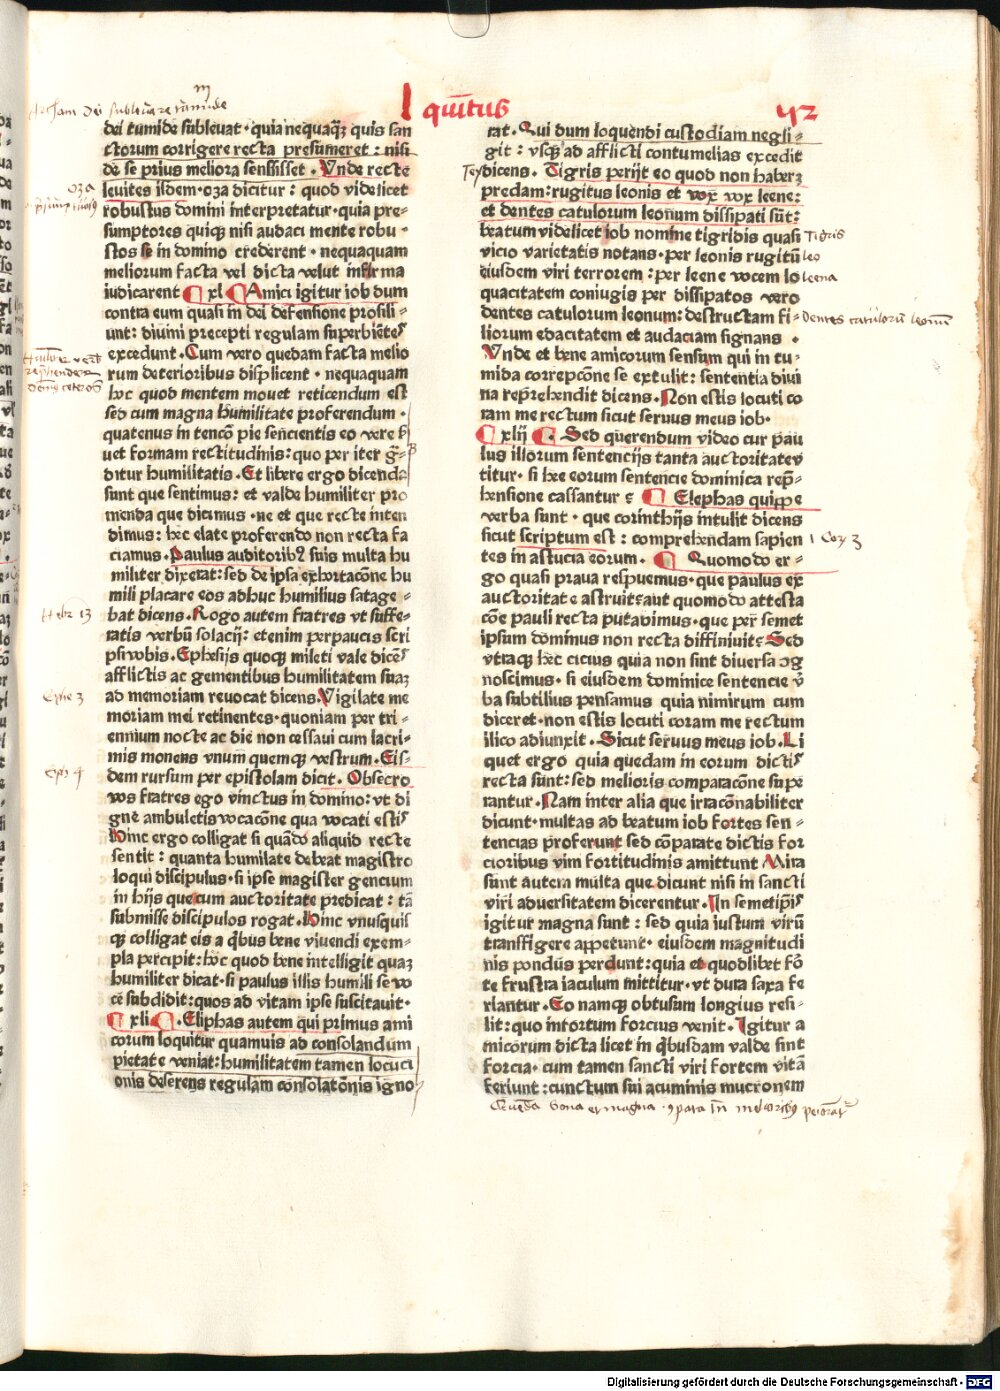 l quintus 42
dei tumide subleuat · quia nequaqȝ quis san
ctorum corrigere recta presumeret : nisi
de se prius meliora sensisset . Vnde recte
leuites isdem · oza dicitur : quod videlicet
robustus domini interpretatur · quia pre-
sumptores quiqȝ nisi audaci mente robu-
stos se in domino crederent · nequaquam
meliorum facta vel dicta velut infirma
iudicarent ¶ xl ¶ Amici igitur iob dum
contra eum quasi in dei defensione prosili-
unt : diuini precepti regulam superbiẽtes
excedunt . Cum vero quedam facta melio
rum deterioribus displicent · nequaquam
hoc quod mentem mouet reticendum est
sed cum magna humilitate proferendum ·
quatenus in tencõ pie sencientis eo vere
uet formam rectitudinis : quo per iter g̃-
ditur humilitatis . Et libere ergo dicenda
sunt que sentimus : et valde humiliter pro
menda que dicimus · ne et que recte inten
dimus : hec elate proferendo non recta fa
ciamus . Paulus auditoribȝ suis multa hu
militer dixerat : sed de ipsa exhortacõne hu
mili placare eos adhuc humilius satage-
bat dicens . Rogo autem fratres vt suffe-
ratis verbũ solacij : etenim perpaucis scri
psi vobis . Ephesijs quoqȝ mileti vale dicẽs
afflictis ac gementibus humilitatem suaȝ
ad memoriam reuocat dicens . Vigilate me
moriam mei retinentes · quoniam per tri-
ennium nocte ac die non cessaui cum lacri-
mis monens vnum quemqȝ vestrum . Eis-
dem rursum per epistolam dicit . Obsecro
vos fratres ego vinctus in domino : vt di
gne ambuletis vocacõne qua vocati estis
Hinc ergo colligat si quãdo aliquid recte
sentit : quanta humilate debeat magistro
loqui discipulus · si ipse magister gencium
in hijs que cum auctoritate predicat : tã
submisse discipulos rogat . Hinc vnusquis
qȝ colligat eis a q̃bus bene viuendi exem-
pla percipit : hoc quod bene intelligit quaȝ
humiliter dicat · si paulus illis humili se vo
ce subdidit : quos ad vitam ipse suscitauit ·
¶ xli ¶ . Eliphas autem qui primus ami
corum loquitur quamuis ad consolandum
pietate veniat : humilitatem tamen locuci
onis deserens regulam consolatõnis igno
rat . Qui dum loquendi custodiam negli-
git : vsqȝ ad afflicti contumelias excedit
dicens . Tigris perijt eo quod non haberȝ
predam : rugitus leonis et vox vox leene :
et dentes catulorum leonum dissipati sũt :
beatum videlicet iob nomine tigridis quasi
vicio varietatis notans · per leonis rugitũ
eiusdem viri terrorem : per leene vocem lo
quacitatem coniugis per dissipatos vero
dentes catulorum leonum : destructam fi-
liorum edacitatem et audaciam signans .
Vnde et bene amicorum sensum qui in tu-
mida correpcõne se extulit : sententia diui
na rep̃rehendit dicens . Non estis locuti co
ram me rectum sicut seruus meus iob .
¶ xlij ¶ . Sed querendum video cur pau
lus illorum sentencijs tanta auctoritate v
titur . si hee eorum sentencie dominica rep̃-
hensione cassantur ¶ Elephas quippe
verba sunt · que corinthijs intulit dicens
sicut scriptum est : comprehendam sapien
tes in astucia eorum . ¶ Quomodo er-
go quasi praua respuemus · que paulus ex
auctoritate astruit : aut quomodo attesta
cõe pauli recta putabimus · que per semet
ipsum dominus non recta diffiniuit : Sed
vtraqȝ hec cicius quia non sint diuersa ɔg
noscimus . si eiusdem dominice sentencie v̾
ba subtilius pensamus quia nimirum cum
diceret · non estis locuti coram me rectum
ilico adiunxit . Sicut seruus meus iob . Li
quet ergo quia quedam in eorum dictis
recta sunt : sed melioris comparacõne supe
rantur . Nam inter alia que irracõnabiliter
dicunt · multas ad beatum iob fortes sen-
tencias proferunt sed cõparate dictis for
cioribus vim fortitudinis amittunt Mira
sunt autem multa que dicunt nisi in sancti
viri aduersitatem dicerentur . In semetip̃is
igitur magna sunt : sed quia iustum virũ
transfigere appetunt · eiusdem magnitudi
nis pondus perdunt : quia et quodlibet fõ
te frustra iaculum mittitur · vt dura saxa fe
riantur . Eo namqȝ obtusum longius resi-
lit : quo intortum forcius venit . Igitur a
micorum dicta licet in q̃busdam valde sint
forcia · cum tamen sancti viri fortem vitã
feriunt : cunctum sui acuminis mucronem
oza
Hebr 13
Ephe 3
Eph 4
Tigris
leo
leena
Dentes catulorũ leonũ
1 Cor 3